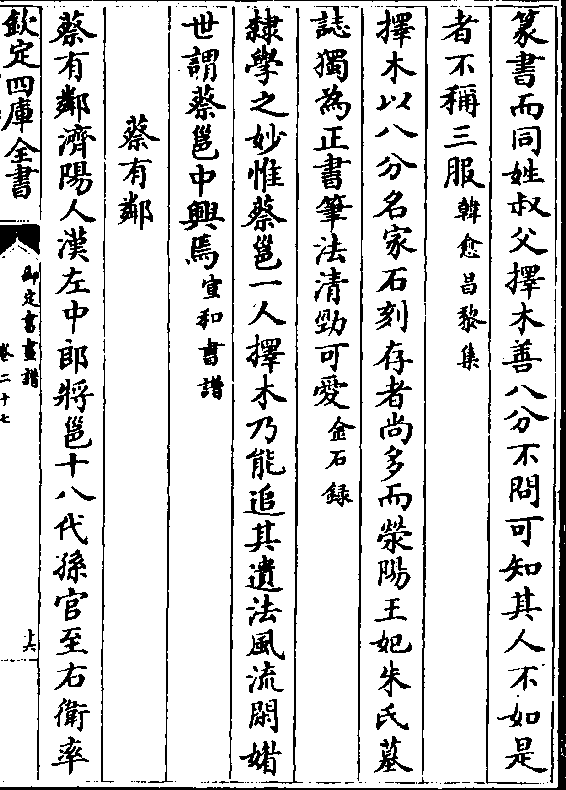 篆書而同姓叔父擇木善八分不問可知其人不如是
者不稱三服韓愈昌黎集
擇木以八分名家石刻存者尚多而滎陽王妃朱氏墓
誌獨為正書筆法清勁可愛金石録
隸學之妙惟蔡邕一人擇木乃能追其遺法風流閑媚
世謂蔡邕中興焉宣和書譜
蔡有鄰
蔡有鄰濟陽人漢左中郎將邕十八代孫官至右衛率
欽定四庫全書
御定書畫譜
卷二十七
十六